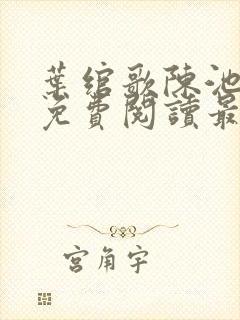 葉綰歌陳池
免費閱讀最
宮角宇